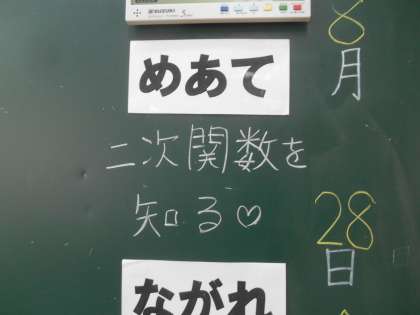 8
月
28
日
めあて
二次関数を
知る♡
ながれ